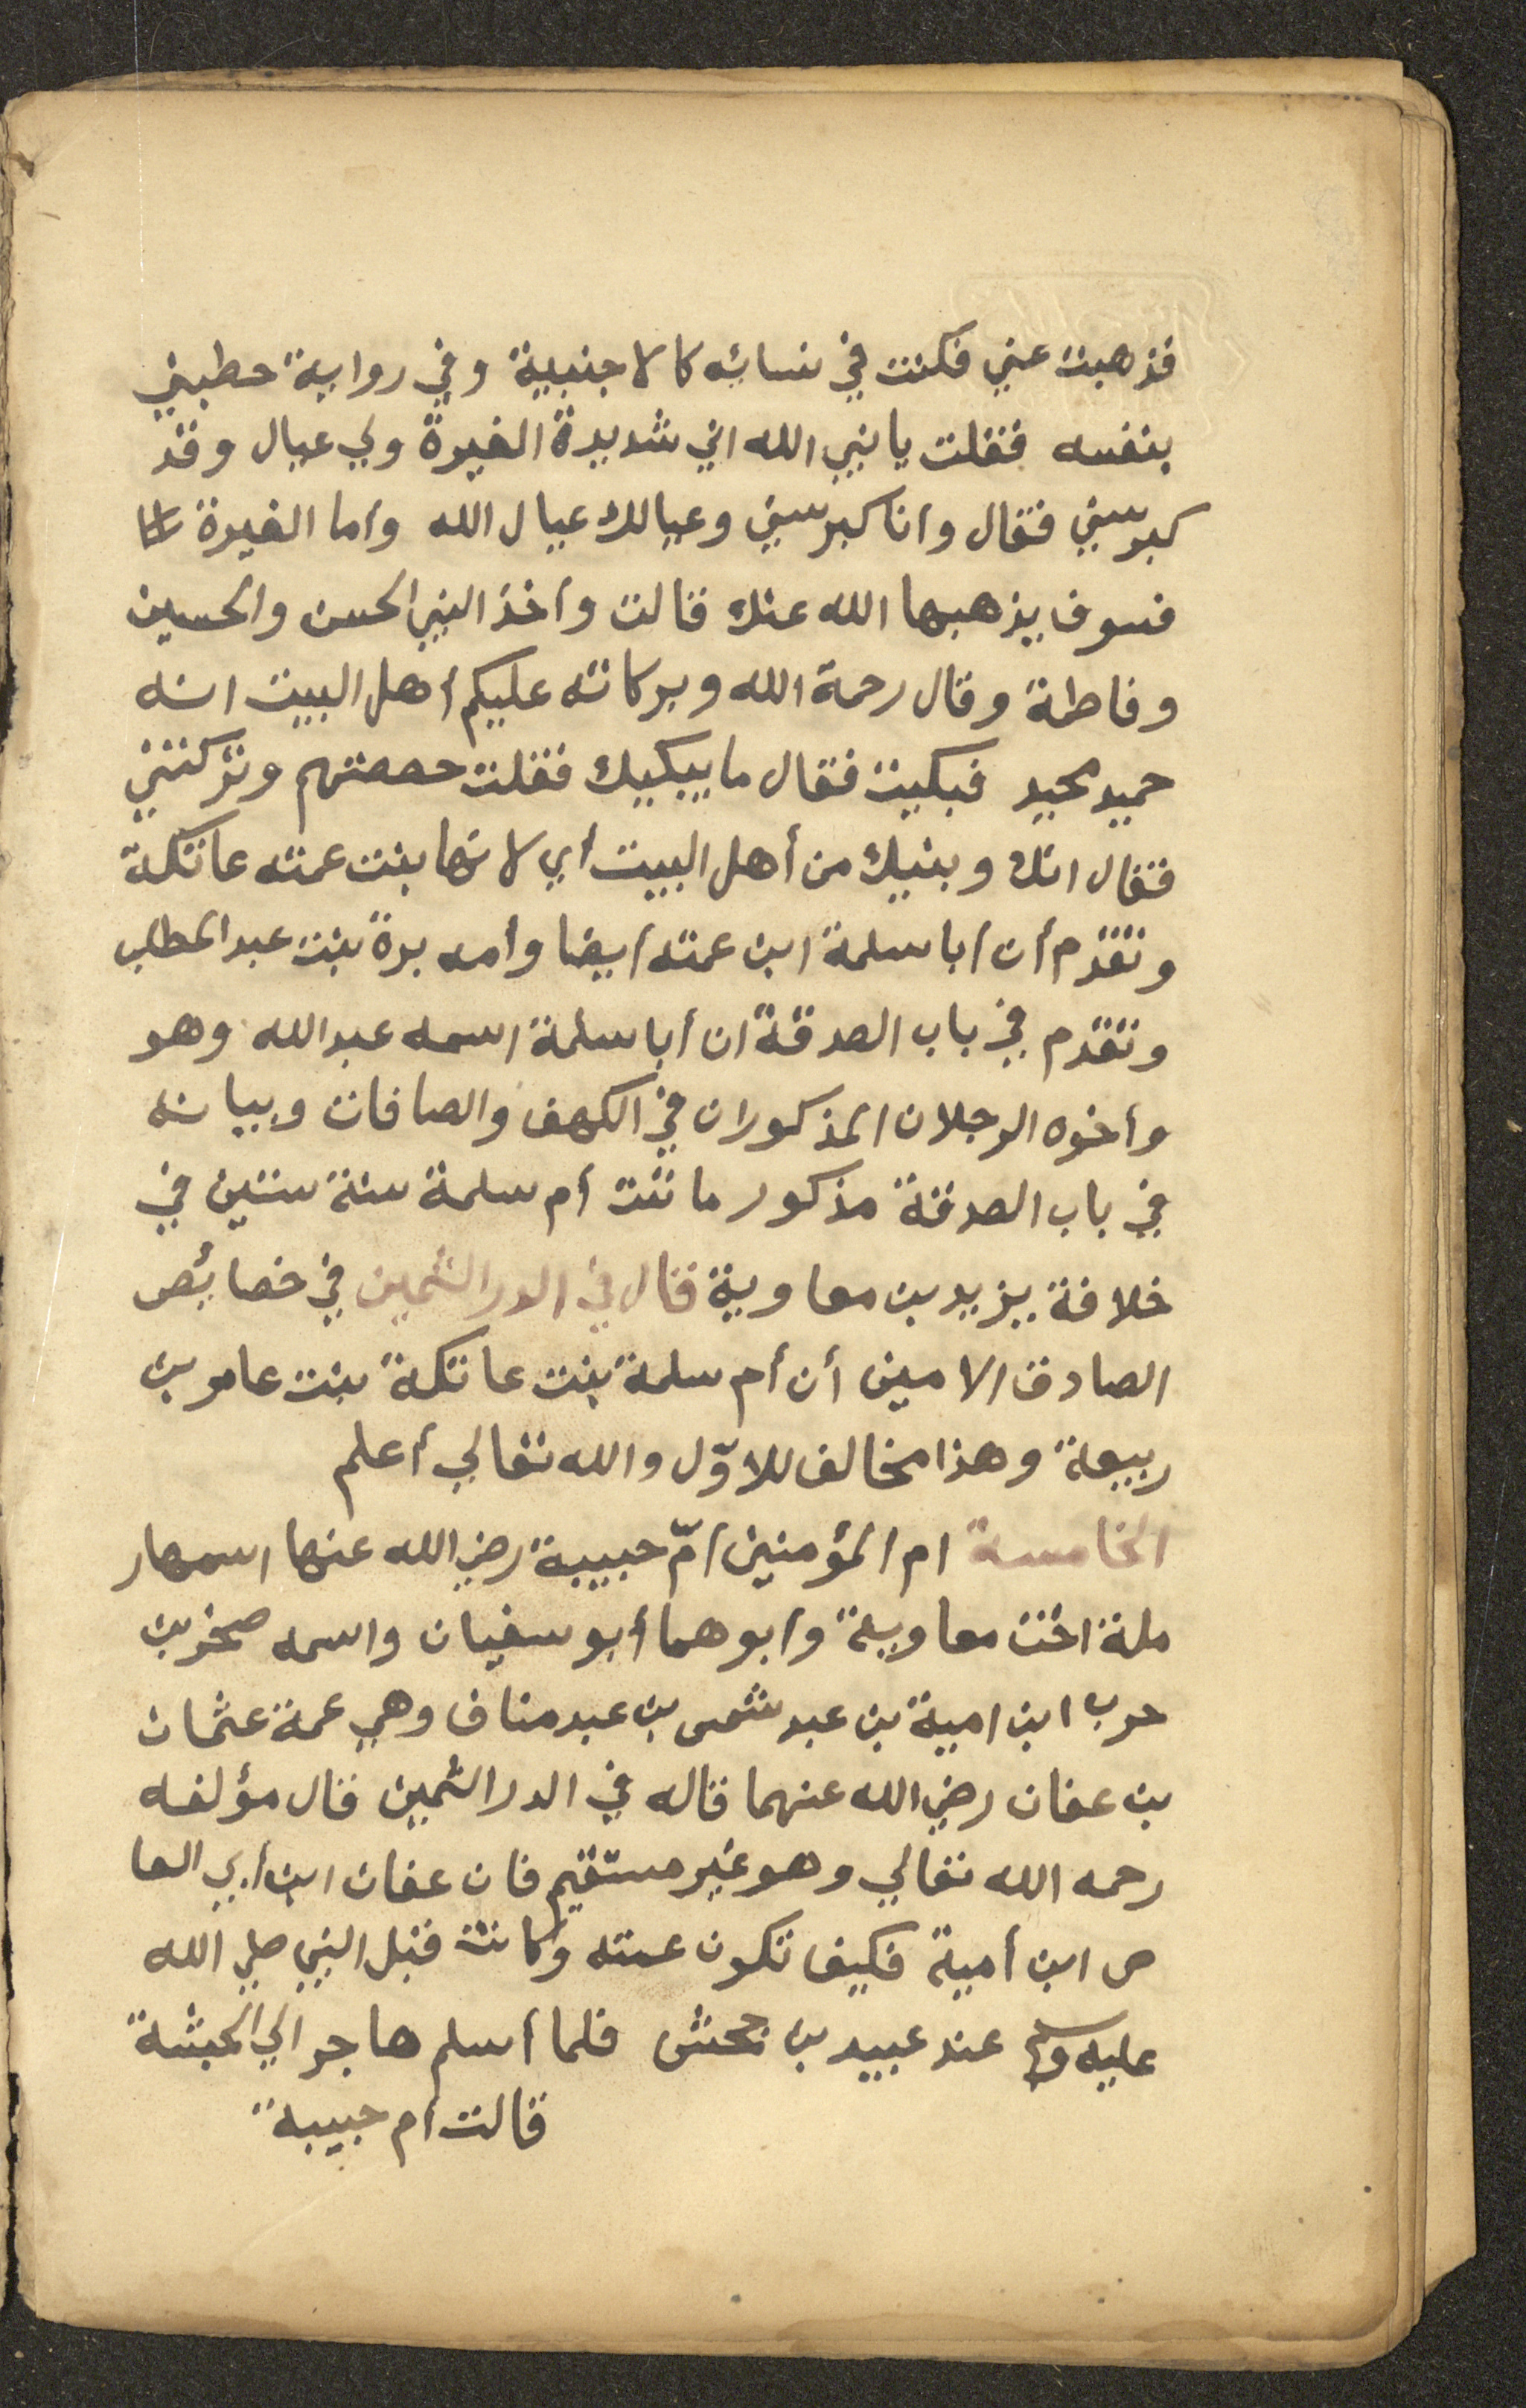 فذهبت عني فكنت في نسائه كالاجنبية وفي رواية خطبني
بنفسه فقلت يا نبي الله اني شديدة الغيرة ولي عيال وقد
كبر سني فقال وانا كبر سني وعيالك عيال الله واما الغيرة
فسوف يذهبها الله عنك قالت وأخذ النبي الحسن والحسين
وفاطمة وقال رحمة الله وبركاته عليكم أهل البيت انه
حميد مجيد فبكيت فقال ما يبكيك فقلت خصصتهم وتركتني
فقال انك وبنيك من أهل البيت أي لانها بنت عمته عاتكة
وتقدم أن أبا سلمة ابن عمته أيضا وأمه برة بنت عبد المطلب
وتقدم في باب الصدقة ان أبا سلمة اسمه عبد الله وهو
وأخوه الرجلان المذكوران في الكهف والصافات وبيانه
في باب الصدقة مذكور ماتت أم سلمة سنة ستين في
خلافة يزيد بن معاوية قال في الدر الثمين في خصائص
الصادق الامين أن أم سلمة بنت عاتكة بنت عامر بن
ربيعة وهذا مخالف للاوّل والله تعالي أعلم
الخامسة ام المؤمنين أمّ حبيبة رضي الله عنها اسمها ر
ملة اخت معاوية وأبوهما أبو سفيان واسمه صخر بن
حرب ابن امية بن عبد شمس بن عبد مناف وهي عمة عثمان
بن عفان رضي الله عنهما قاله في الدر الثمين قال مؤلفه
رحمه الله تعالي وهو غير مستقيم فان عفان ابن أبي العا
ص ابن أمية فكيف تكون عمته وكانت قبل النبي صلي الله
عليه وسلم عند عبيد بن جحش فلما أسلم هاجر الي الحبشة
قالت أم حبيبة